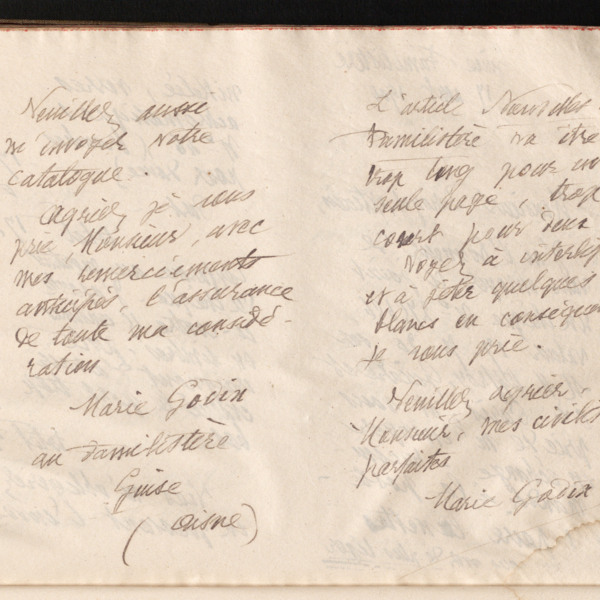 Veuillez aussi
m'envoyer votre
catalogue.
Agréez je vous
prie, Monsieur, avec
mes remerciements
anticipés, l'assurance
de toute ma considé-
ration
Marie Godin
au Familistère
Guise
(Aisne)
L'article Nouvelles
Familistère va être
trop long pour un
seule page, trop
court pour deux
voyez à interlig
et à jeter quelques
blancs en conséquen
je vous prie.
Veuillez agréer,
Monsieur, mes civilit
parfaites
Marie Godin